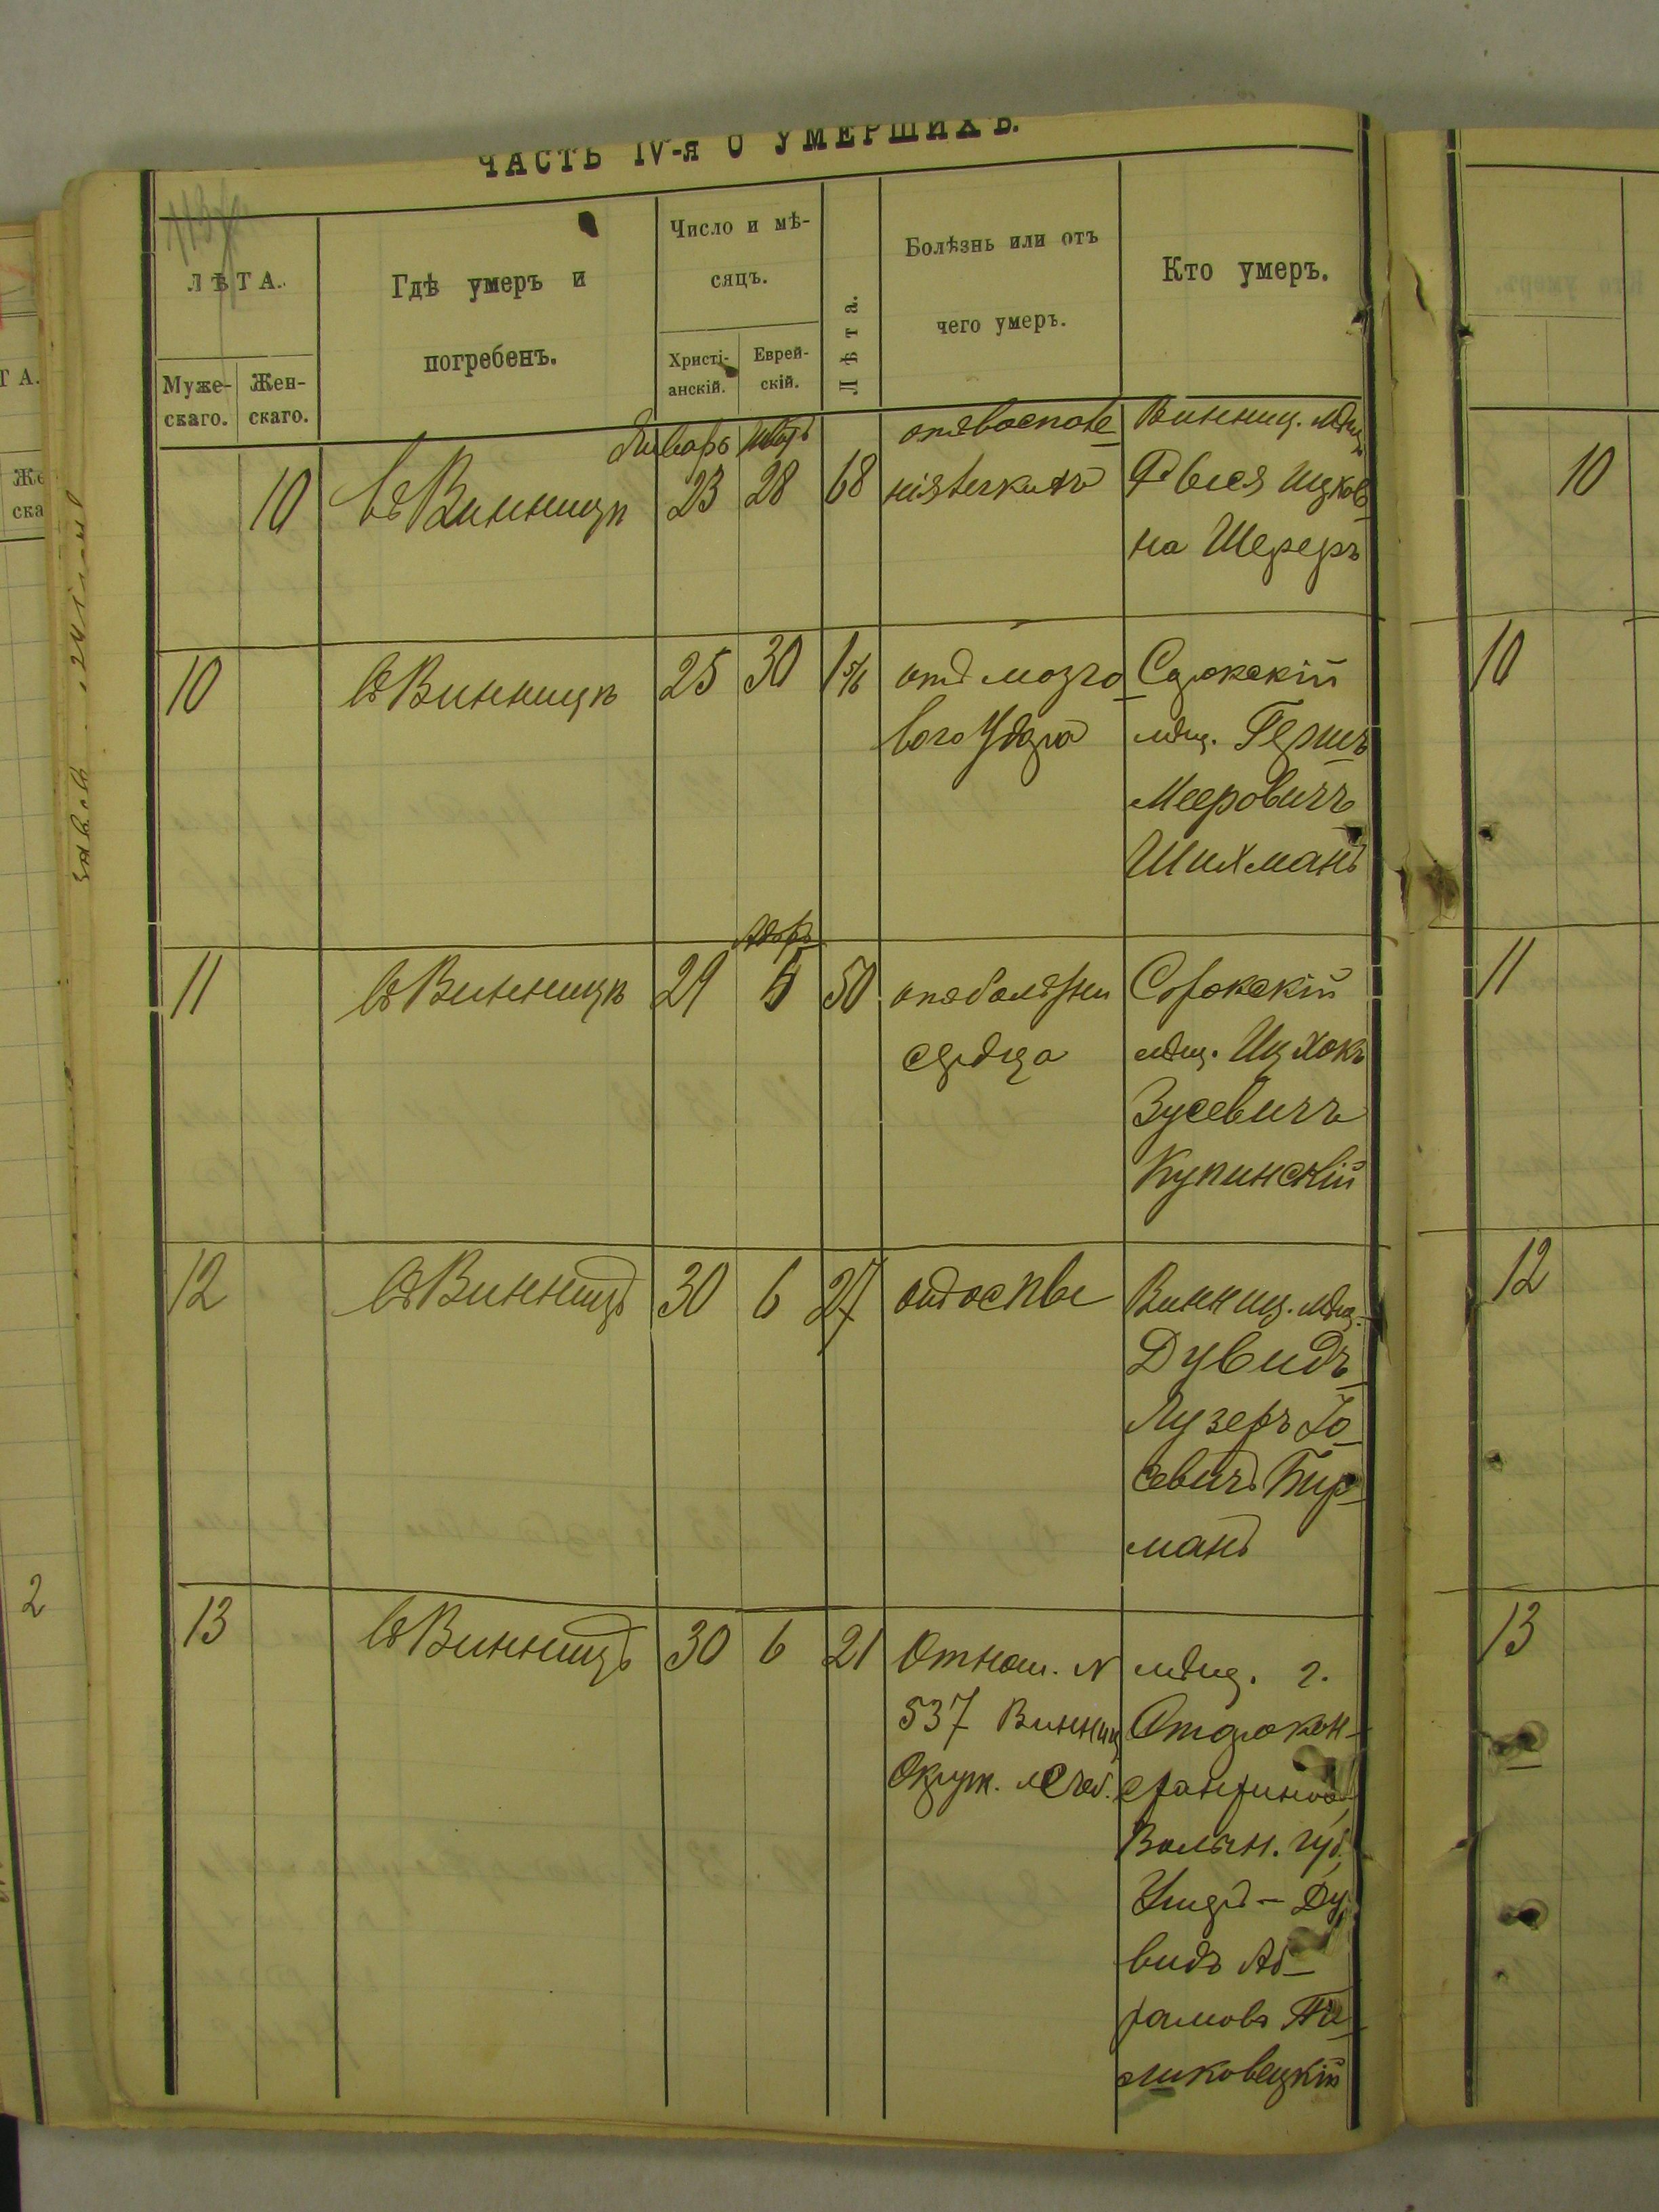 ЧАСТЬ IV-я О УМЕРШИХЪ.
ЛѢТА.
Муже-
скаго.
Жен-
скаго.
Гдѣ умеръ и
погребенъ.
Число и мѣ-
сяцъ.
Христі-
анскій.
Еврей-
скій.
Лѣта.
Болѣзнь или отъ
чего умеръ.
Кто умеръ.
Январь
10 въ Винницѣ 23 28 68
отъ воспале
нія легкихъ
Винниц. мѣщ.
на Шереръ
10 въ Винницѣ 25 30
отъ мозго
вого удара
мѣщ. Герш
Мееровичъ
Шихманъ
Адаръ
11 въ Винницѣ 29 5 50
отъ болѣзни
сердца
Сорокскій
мѣщ. Ицхокъ
Зусевичъ
Купинскій
12 въ Винницѣ 30 6 27
отъ оспы
Винниц. мѣщ.
Дувидъ
Лузеръ Іо
севичъ Бир
манъ
13 въ Винницѣ 30 6 21
Отнош. N
537 Винниц
Окруж. лечеб.
мѣщ. г.
Старокон-
стантинова
Волын. губ.
Ду
видъ Аб
рамовъ
ликовецкій
10
10
11
12
13
2